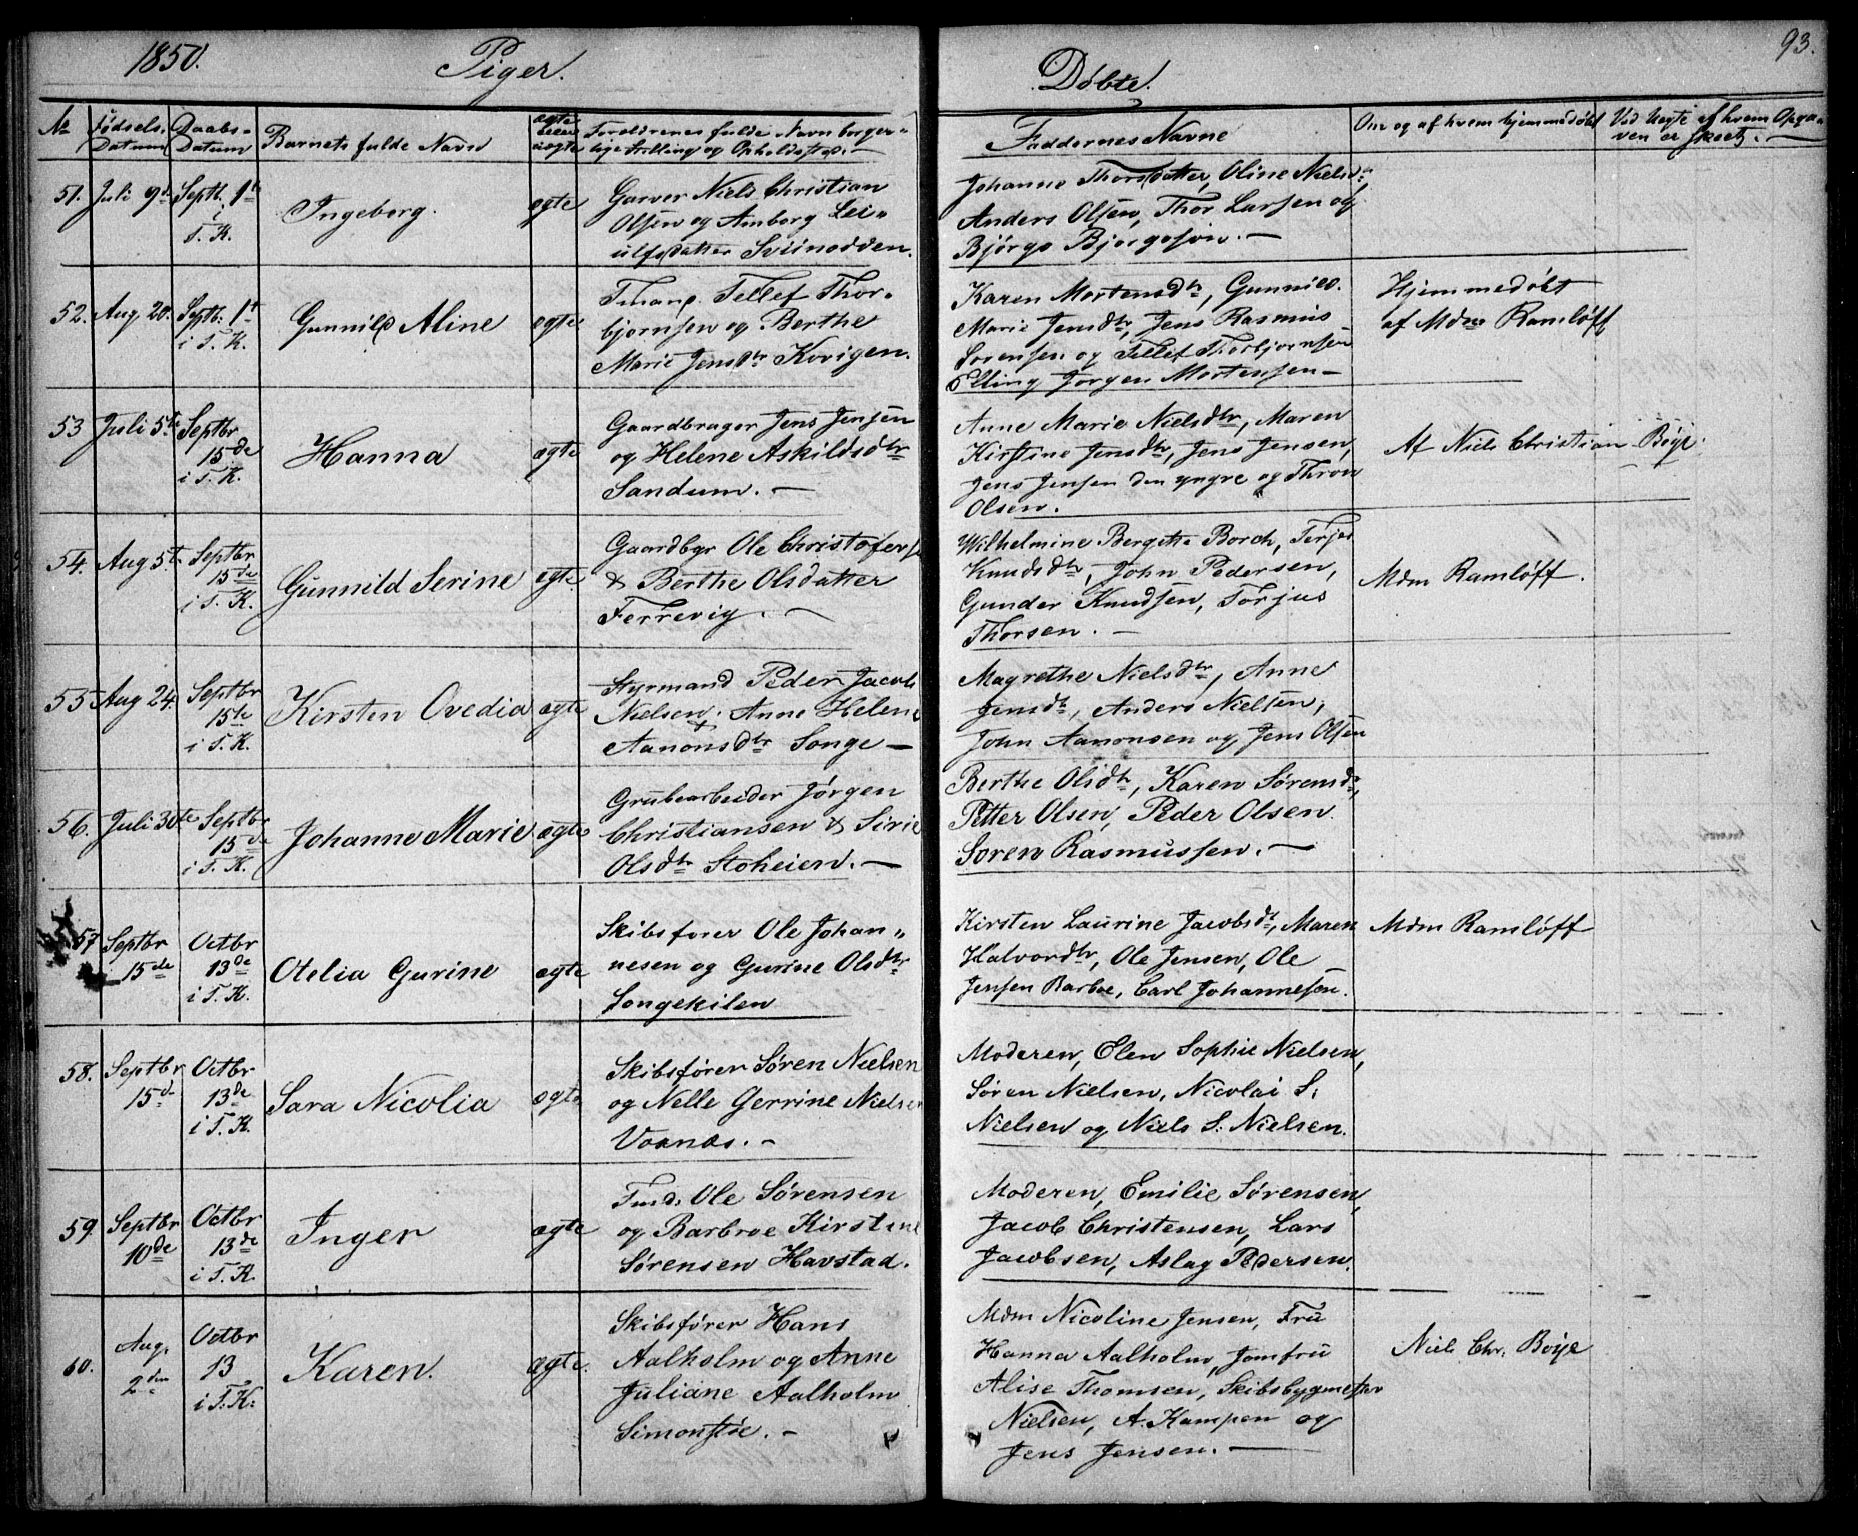 1850.
Piger.
Døbte.
93.
No
Fødsels-
Datum
Daabs-
Datum
Barnets fulde Navn
ægte
eller
uægte
Forældrenes fulde Navn borger-
lige Stilling og Opholdssted.
Faddernes Navne
Om og af hvem hjemmedøbt
Ved Uægte af hvem Opga-
ven er skeet.
51.
Juli 9d
Septb. 1te
i
T. K.
Ingeborg.
ægte
Garver Niels Christian
Olsen og Amborg Lei-
ulfsdatter Sviinodden.
Johanne Thorsdatter, Oline Nielsdr
Anders Olsen, Thor Larsen og
Bjørge Bjørgesøn.
52.
Aug 20.
Septb. 1t
i T. K.
Gunnild Aline
ægte
Tmand. Tellef Thor-
bjørnsen og Berthe
Marie Jensdtr Kovigen.
Karen Mortensdtr, Gunnild
Marie Jensdtr, Jens Rasmus
Sørensen og Tellef Thorbjørnsen
Elling Jørgen Mortensen
Hjemmedøbt
af Mdme Ramløff
53
Juli 5te
Septbr
15de
i T. K.
Hanna
ægte
Gaardbruger Jens Jensen
og Helene Askildsdtr
Sandum.
Anne Marie Nielsdtr, Maren
Kirstine Jensdtr, Jens Jensen,
Jens Jensen den yngre og Thron
Olsen.
Af Niels Christian Bøye.
54.
Aug 5t.
Septbr
15de
i T. K.
Gunnild Serine
ægte.
Gaardbgr Ole Christofersn
& Berthe Olsdatter
Ferrevig.
Wilhelmine Bergithe Borch, Terjer
Knudsdtr, John Pedersen,
Gunder Knudsen, Torjus
Thorsen.
Mdm Ramløff.
55
Aug 24.
Septbr
15te
i T. K.
Kirsten Ovedia
ægte
Styrmand Peder Jacob
Nielsen & Anne Helene
Aanonsdtr Songe
Magrethe Nielsdtr, Anne
Jensdtr, Anders Nielsen,
John Aanonsen og Jens Olsen
56.
Juli 30te
Septbr
15de
i T. K.
Johanne Marie
ægte
Grubearbeider Jørgen
Christiansen & Sirie
Olsdtr Stoheien.
Berthe Olsdtr, Karen Sørensdtr,
Petter Olsen, Peder Olsen.
Søren Rasmussen.
57
Septbr
15de
Octbr
13de
i T. K.
Otelia Gurine
ægte
Skibsfører Ole Johan-
nesen og Gurine Olsdtr
Songekilen
Kirsten Laurine Jacobsdt, Maren
Halvordtr, Ole Jensen, Ole
Jensen Barboe, Carl Johannesen.
Mdm Ramløff
58.
Septbr
15d
Octbr
13de
i T. K.
Sara Nicolia
ægte
Skibsfører Søren Nielsen
og Nelle Gerrine Nielsen
Voxnæs.
Moderen, Elen Sophie Nielsen,
Søren Nielsen, Nicolai S.
Nielsen og Niels S. Nielsen.
59.
Septbr
10de
Octbr
13de
i T. K.
Inger
ægte
Tmd. Ole Sørensen
og Barbroe Kirstine
Sørensen Havstad.
Moderen, Emilie Sørensen,
Jacob Christensen, Lars
Jacobsen, Aslag Pedersen.
60.
Aug.
2den
Octbr
13
i T. K.
Karen.
ægte.
Skibsfører Hans
Aalholm og Anne
Juliane Aalholm
Simonstøe.
Mdm Nicoline Jensen, Fru
Hanna Aalholm, Jomfru
Alise Thomsen, Skibsbygmester
Nielsen, A. Kampen og
Jens Jensen.
Niels Chr. Bøye